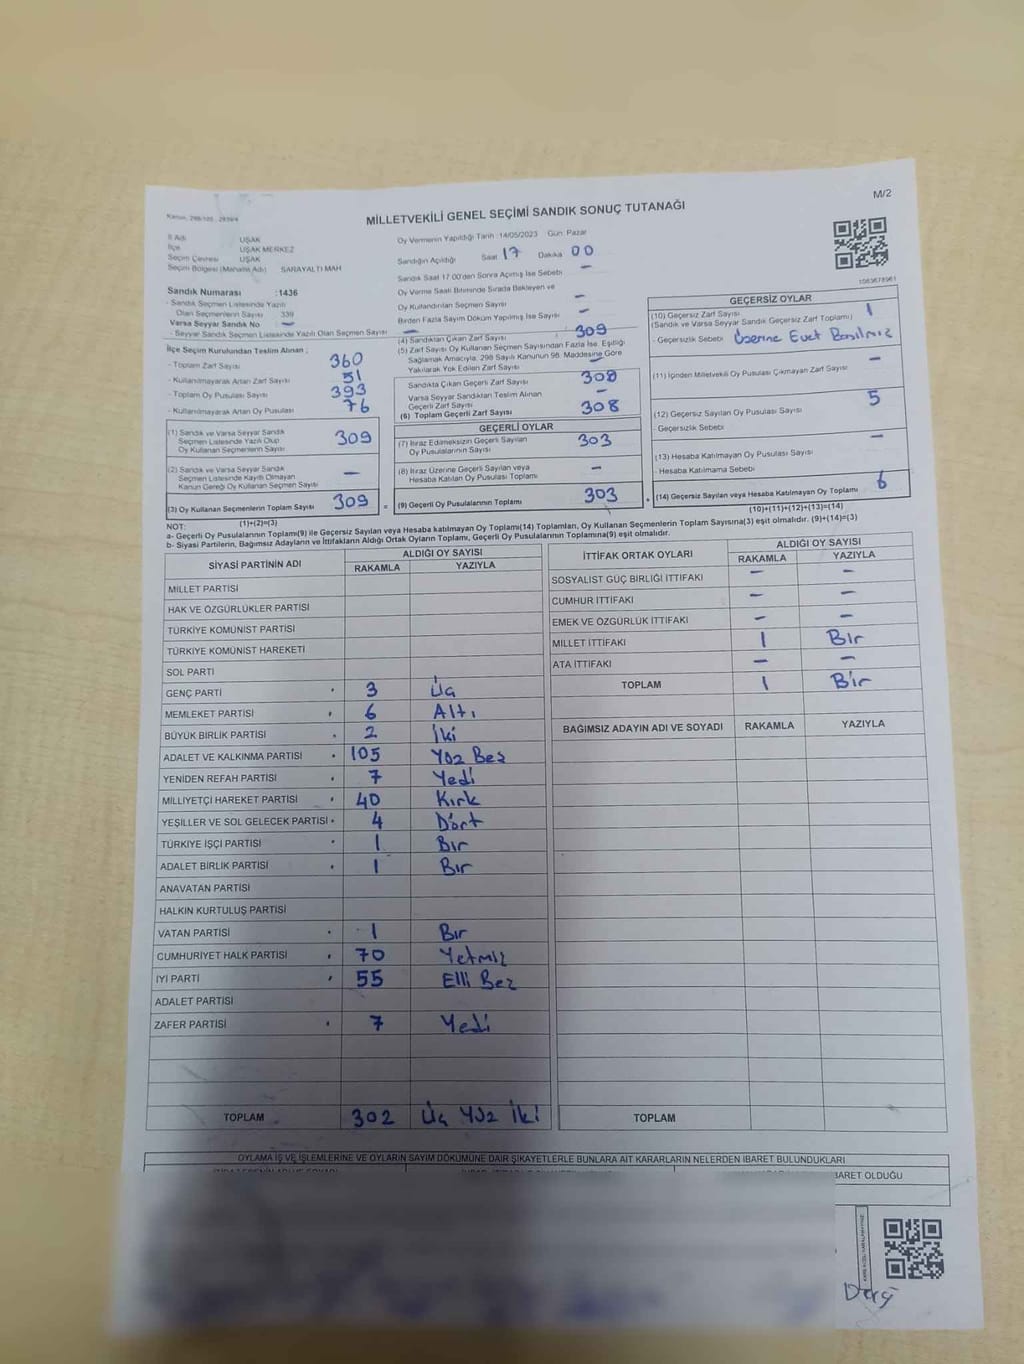 M/2
Kanun, 298/105 - 2839/4
MİLLETVEKİLİ GENEL SEÇİMİ SANDIK SONUÇ TUTANAĞI
İl Adı UŞAK
İlçe UŞAK MERKEZ
Seçim Çevresi UŞAK
Seçim Bölgesi (Mahalle Adı) SARAYALTI MAH
Sandık Numarası :1436
- Sandık Seçmen Listesinde Yazılı
Olan Seçmenlerin Sayısı 339
Varsa Seyyar Sandık No –
- Seyyar Sandık Seçmen Listesinde Yazılı Olan Seçmen Sayısı –
İlçe Seçim Kurulundan Teslim Alınan :
- Toplam Zarf Sayısı 360
- Kullanılmayarak Artan Zarf Sayısı 51
- Toplam Oy Pusulası Sayısı 393
- Kullanılmayarak Artan Oy Pusulası 76
(1) Sandık ve Varsa Seyyar Sandık
Seçmen Listesinde Yazılı Olup
Oy Kullanan Seçmenlerin Sayısı 309
(2) Sandık ve Varsa Seyyar Sandık
Seçmen Listesinde Kayıtlı Olmayan
Kanun Gereği Oy Kullanan Seçmen Sayısı –
(3) Oy Kullanan Seçmenlerin Toplam Sayısı 309
(1)+(2)=(3)
Oy Vermenin Yapıldığı Tarih :14/05/2023 Gün: Pazar
Sandığın Açıldığı Saat 17 Dakika 00
Sandık Saat 17:00'den Sonra Açılmış İse Sebebi –
Oy Verme Saati Bitiminde Sırada Bekleyen ve
Oy Kullandırılan Seçmen Sayısı –
Birden Fazla Sayım Döküm Yapılmış İse Sayısı –
(4) Sandıktan Çıkan Zarf Sayısı 309
(5) Zarf Sayısı Oy Kullanan Seçmen Sayısından Fazla İse, Eşitliği
Sağlamak Amacıyla, 298 Sayılı Kanunun 98. Maddesine Göre
Yakılarak Yok Edilen Zarf Sayısı –
Sandıkta Çıkan Geçerli Zarf Sayısı 308
Varsa Seyyar Sandıktan Teslim Alınan
Geçerli Zarf Sayısı –
(6) Toplam Geçerli Zarf Sayısı 308
GEÇERLİ OYLAR
(7) İtiraz Edilmeksizin Geçerli Sayılan
Oy Pusulalarının Sayısı 303
(8) İtiraz Üzerine Geçerli Sayılan veya
Hesaba Katılan Oy Pusulası Toplamı –
(9) Geçerli Oy Pusulalarının Toplamı 303
1083678961
GEÇERSİZ OYLAR
(10) Geçersiz Zarf Sayısı 1
(Sandık ve Varsa Seyyar Sandık Geçersiz Zarf Toplamı)
- Geçersizlik Sebebi Üzerine Evet Basılmız
(11) İçinden Milletvekili Oy Pusulası Çıkmayan Zarf Sayısı –
(12) Geçersiz Sayılan Oy Pusulası Sayısı 5
- Geçersizlik Sebebi
(13) Hesaba Katılmayan Oy Pusulası Sayısı –
- Hesaba Katılmama Sebebi
(14) Geçersiz Sayılan veya Hesaba Katılmayan Oy Toplamı 6
(10)+(11)+(12)+(13)=(14)
NOT:
a- Geçerli Oy Pusulalarının Toplamı(9) ile Geçersiz Sayılan veya Hesaba katılmayan Oy Toplamı(14) Toplamları, Oy Kullanan Seçmenlerin Toplam Sayısına(3) eşit olmalıdır. (9)+(14)=(3)
b- Siyasi Partilerin, Bağımsız Adayların ve İttifakların Aldığı Ortak Oyların Toplamı, Geçerli Oy Pusulalarının Toplamına(9) eşit olmalıdır.
SİYASİ PARTİNİN ADI ALDIĞI OY SAYISI
RAKAMLA YAZIYLA
MİLLET PARTİSİ
HAK VE ÖZGÜRLÜKLER PARTİSİ
TÜRKİYE KOMÜNİST PARTİSİ
TÜRKİYE KOMÜNİST HAREKETİ
SOL PARTİ
GENÇ PARTİ 3 Üç
MEMLEKET PARTİSİ 6 Altı
BÜYÜK BİRLİK PARTİSİ 2 İki
ADALET VE KALKINMA PARTİSİ 105 Yüz Beş
YENİDEN REFAH PARTİSİ 7 Yedi
MİLLİYETÇİ HAREKET PARTİSİ 40 Kırk
YEŞİLLER VE SOL GELECEK PARTİSİ 4 Dört
TÜRKİYE İŞÇİ PARTİSİ 1 Bir
ADALET BİRLİK PARTİSİ 1 Bir
ANAVATAN PARTİSİ
HALKIN KURTULUŞ PARTİSİ
VATAN PARTİSİ 1 Bir
CUMHURİYET HALK PARTİSİ 70 Yetmiz
İYİ PARTİ 55 Elli Bez
ADALET PARTİSİ
ZAFER PARTİSİ 7 Yedi
TOPLAM 302 Üç Yüz İki
İTTİFAK ORTAK OYLARI ALDIĞI OY SAYISI
RAKAMLA YAZIYLA
SOSYALİST GÜÇ BİRLİĞİ İTTİFAKI – –
CUMHUR İTTİFAKI – –
EMEK VE ÖZGÜRLÜK İTTİFAKI – –
MİLLET İTTİFAKI 1 Bir
ATA İTTİFAKI – –
TOPLAM 1 Bir
BAĞIMSIZ ADAYIN ADI VE SOYADI RAKAMLA YAZIYLA
TOPLAM
OYLAMA İŞ VE İŞLEMLERİNE VE OYLARIN SAYIM DÖKÜMÜNE DAİR ŞİKAYETLERLE BUNLARA AİT KARARLARIN NELERDEN İBARET BULUNDUKLARI
BARET OLDUĞU